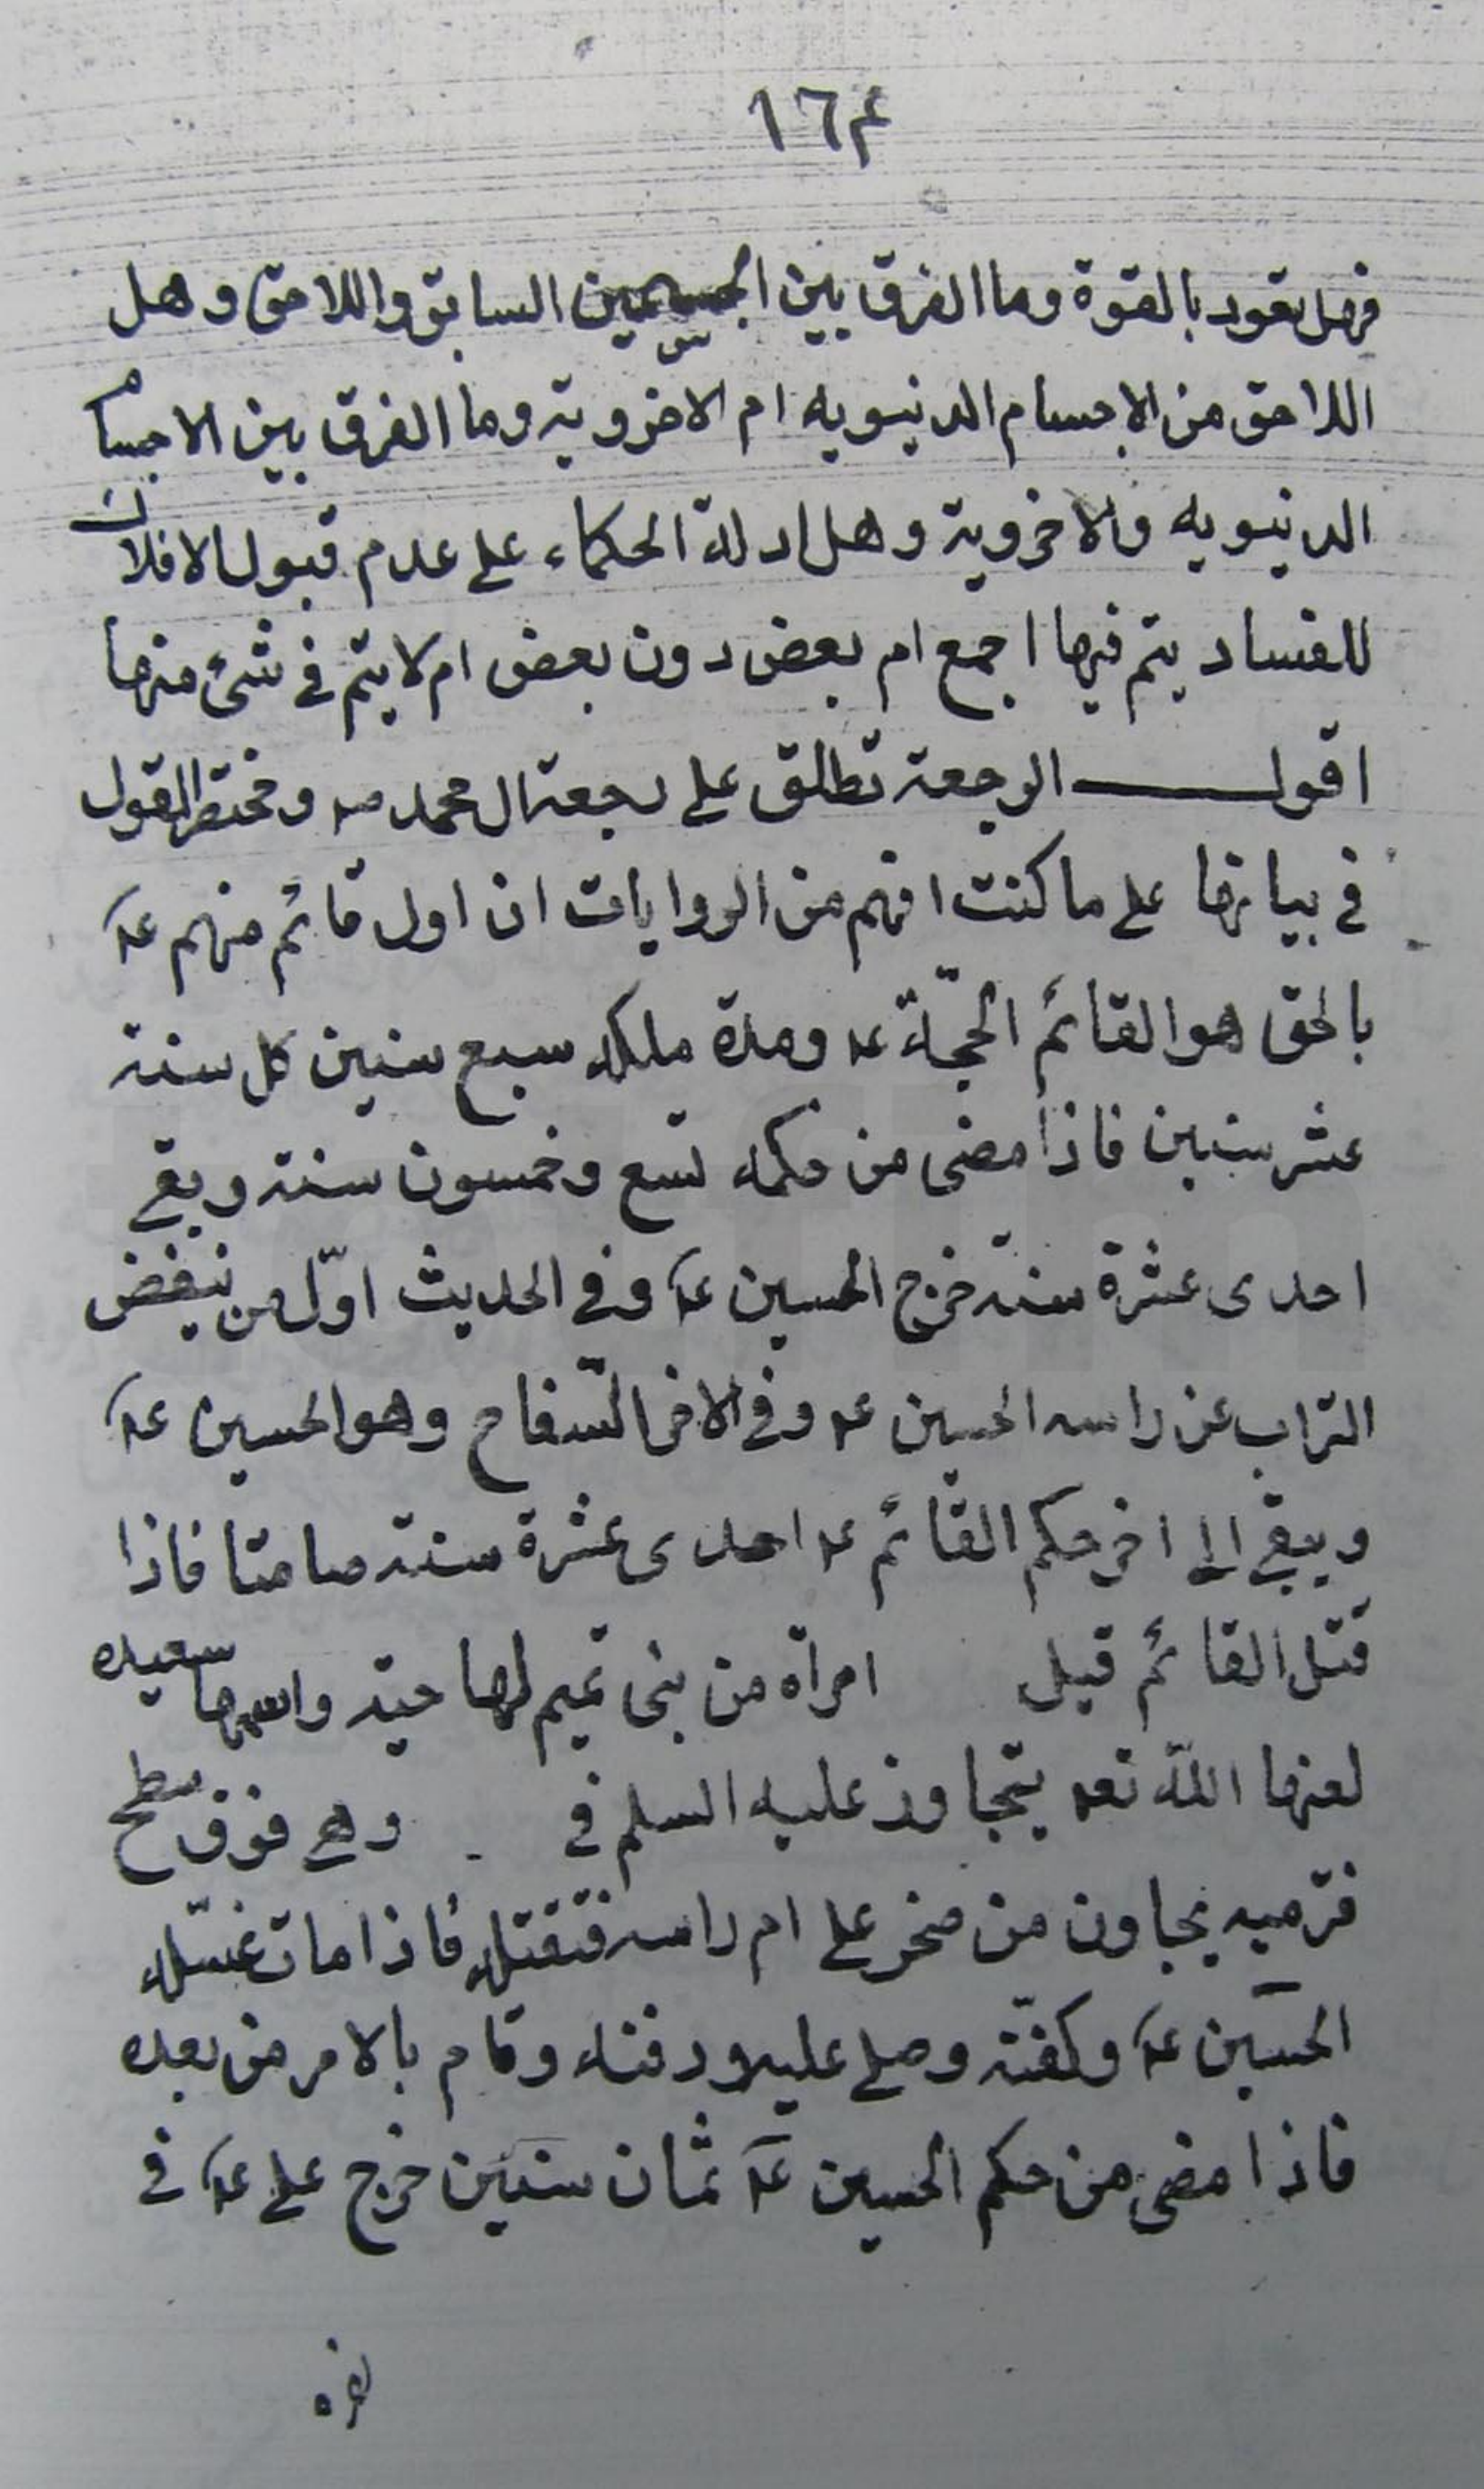 ١٦٤
فهل يعود بالقوة وما الفرق بين الجسمين السابق واللاحق وهل
اللاحق من الاجسام الدنيويه ام الاخروية وما الفرق بين الاجسام
الدنيويه والاخروية وهل ادلة الحكماء على عدم قبول الافلاك
للفساد يتم فيها اجمع ام بعض دون بعض ام لا يتم في شئ منها
اقول الرجعة تطلق على رجعة ال محمد صه ومختصر القول
في بيانها على ما كنت افهم من الروايات ان اول قائم منهم عه
بالحق هو القائم الحجّة عه ومدة ملكه سبع سنين كل سنة
عشر سنين فاذا مضى من حكمه تسع وخمسون سنة وبقي
احدى عشرة سنة خرج الحسين عه وفي الحديث اوّل من ينفض
التراب عن راسه الحسين عه وفي الاخر السّفاح وهو الحسين عه
ويبقى الى اخر حكم القائم عه احدى عشرة سنة صامتا فاذا
قتل القائم قيل امراة من بنى تميم لها حية واسمها سعيده
لعنها الله تعه يتجاوز عليه السلم في وهي فوق سطح
فترميه بجاون من صخر على ام راسه فتقتله فاذا مات غسّله
الحسين عه وكفنّه وصلى عليه ودفنه وقام بالامر من بعده
فاذا مضى من حكم الحسين عه ثمان سنين خرج على عه في